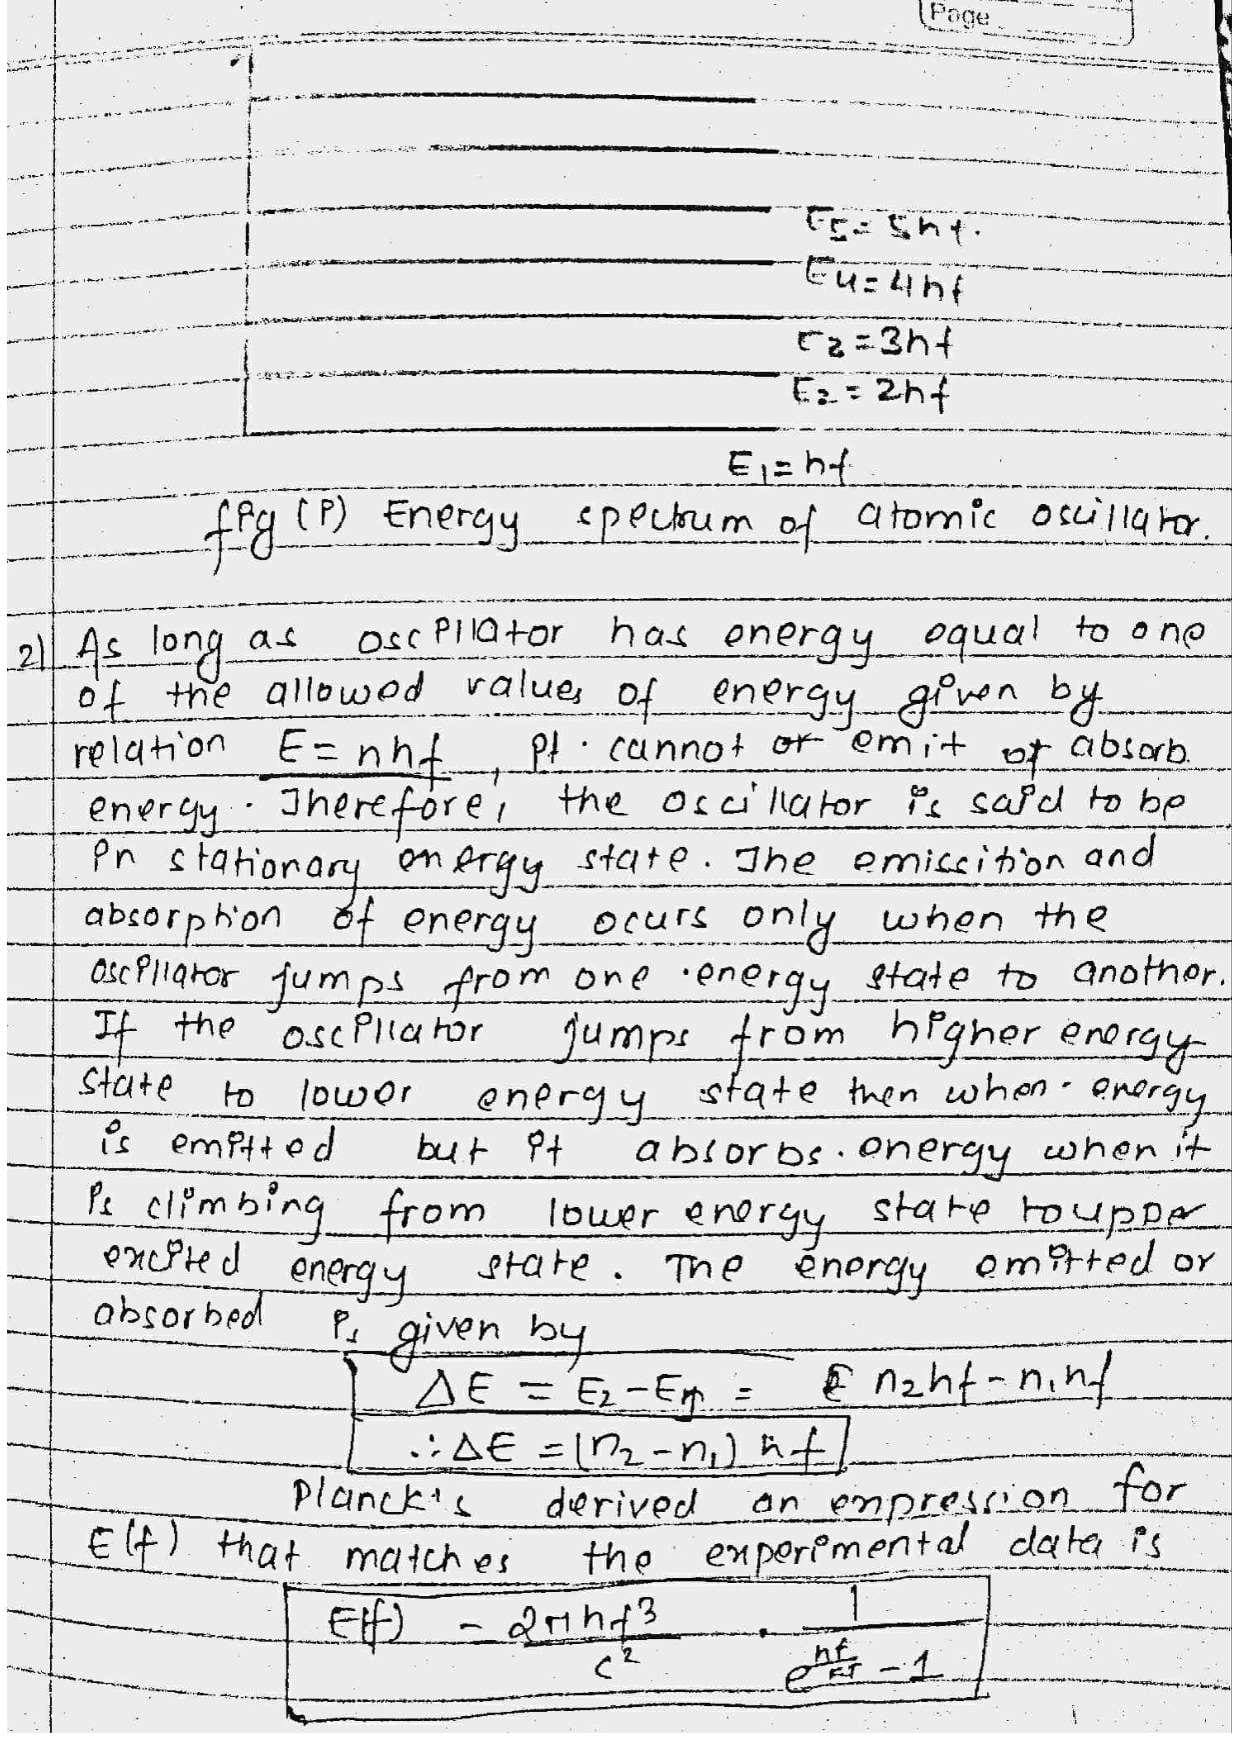 Page
E5 = 5hf.
E4 = 4hf
E3 = 3hf
E2 = 2hf
E1 = hf
fig (i) Energy spectrum of atomic oscillator.
2) As long as oscillator has energy equal to one
of the allowed values of energy given by
relation E = nhf, it cannot or emit or absorb
energy. Therefore, the oscillator is said to be
in stationary energy state. The emiscition and
absorption of energy ocurs only when the
oscillator jumps from one energy state to another.
If the oscillator jumps from higher energy
state to lower energy state then when energy
is emitted but it absorbs energy when it
is climbing from lower energy state to upper
excited energy state. The energy emitted or
absorbed is given by
ΔE = E2 - E1 = n2hf - n1hf
∴ ΔE = (n2 - n1) hf
Planck's derived an expression for
E(f) that matches the experimental data is
E(f) = 2πhf³/c² · 1/(e^(hf/KT) - 1)